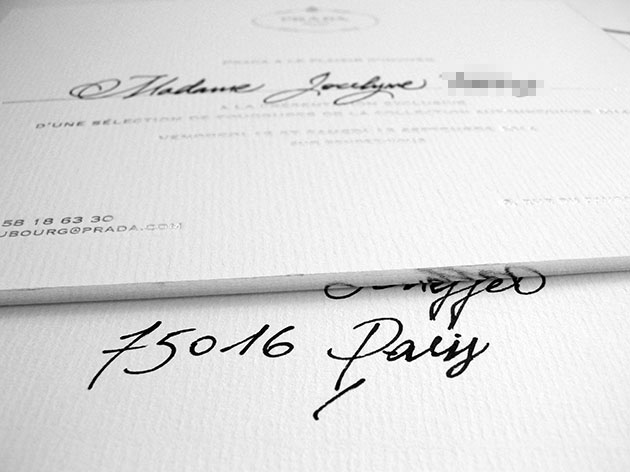 PRADA
PRADA A LE PLAISIR D'INVITER
Madame Jocelyne
À LA PRÉSENTATION EXCLUSIVE
D'UNE SÉLECTION DE FOURRURES DE LA COLLECTION
VENDREDI ET SAMEDI SEPTEMBRE
SUR RENDEZ-VOUS
58 18 63 30
UBOURG@PRADA.COM
75016 Paris